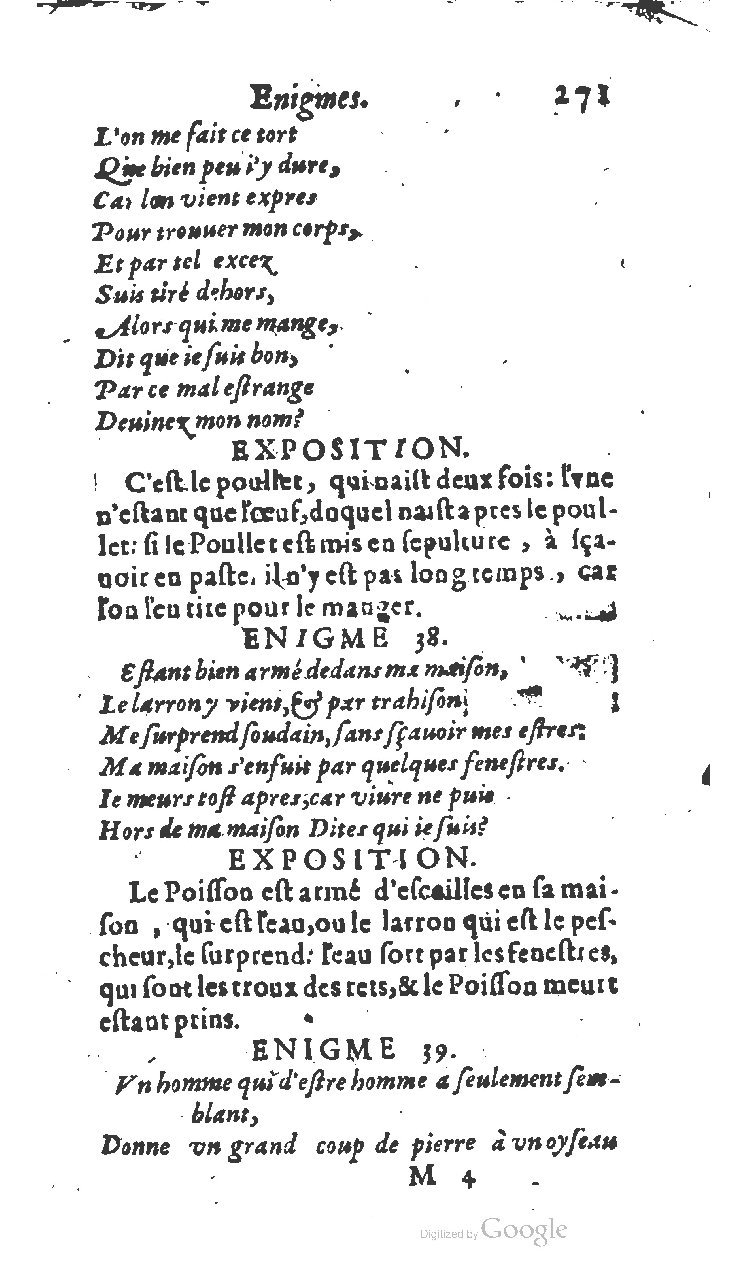 Enigmes. 271
L'on me fait ce tort
Que bien peu i'y dure,
Car lon vient expres
Pour trouuer mon corps,
Et par tel excez
Suis tiré dehors,
Alors qui me mange,
Dit que ie ſuis bon,
Par ce mal eſtrange
Deuinez mon nom?
EXPOSITION.
C'eſt le poullet, qui naiſt deux fois: l'vne
n'eſtant que l'œuf, duquel naiſt apres le poul-
let: ſi le Poullet eſt mis en ſepulture, à ſça-
uoir en paſte, il n'y eſt pas long temps, car
l'on l'en tire pour le manger.
ENIGME 38.
Eſtant bien armé dedans ma maiſon,
Le larron y vient, & par trahiſon
Me ſurprend ſoudain, ſans ſçauoir mes eſtres:
Ma maiſon s'enfuit par quelques feneſtres.
Ie meurs toſt apres, car viure ne puis
Hors de ma maiſon Dites qui ie ſuis?
EXPOSITION.
Le Poiſſon eſt armé d'eſcailles en ſa mai-
ſon, qui eſt l'eau, ou le larron qui eſt le peſ-
cheur, le ſurprend: l'eau ſort par les feneſtres,
qui ſont les troux des rets, & le Poiſſon meurt
eſtant prins.
ENIGME 39.
Vn homme qui d'eſtre homme a ſeulement ſem-
blant,
Donne vn grand coup de pierre à vn oyſeau
M 4
Digitized by Google